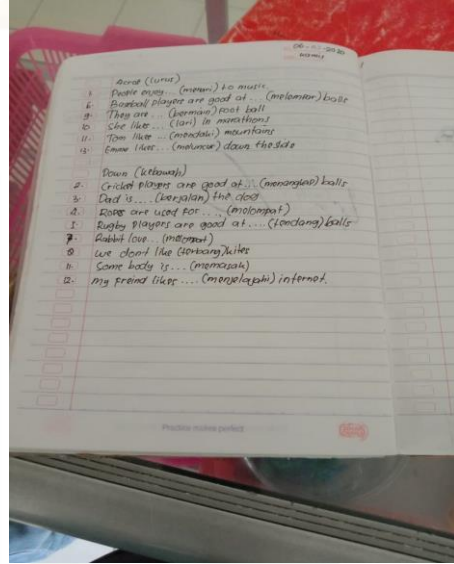 06-02-2020
Kamis
Acros (lurus)
1. People enjoy... (menari) to music
6. Baseball players are good at ... (melempar) balls
9. They are ... (bermain) foot ball
10 She likes ... (lari) in marathons
11. Tom likes ... (mendaki) mountains
13. Emma likes... (meluncur) down the slide
Down (kebawah)
2. Cricket players are good at... (menangkap) balls
3. Dad is .... (berjalan) the dog
4. Ropes are used for .... (melompat)
5. Rugby players are good at .... (tendang) balls
7. Rabbit love... (melompat)
8 we don't like (terbang) kites
11. Some body is ... (memasak)
12. my freind likes .... (menjelajahi) internet.
Practice makes perfect